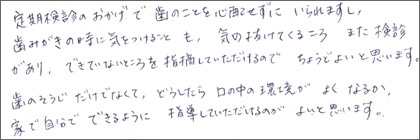 定期検診のおかげで歯のことを心配せずにいられますし、
歯みがきの時に気をつけることも、気の抜けてくるころ また検診
があり、できていないところを指摘していただけるので ちょうどよいと思います。
歯のそうじだけでなくて、どうしたら口の中の環境が よくなるか、
家で自分で できるように 指導していただけるのが よいと思います。